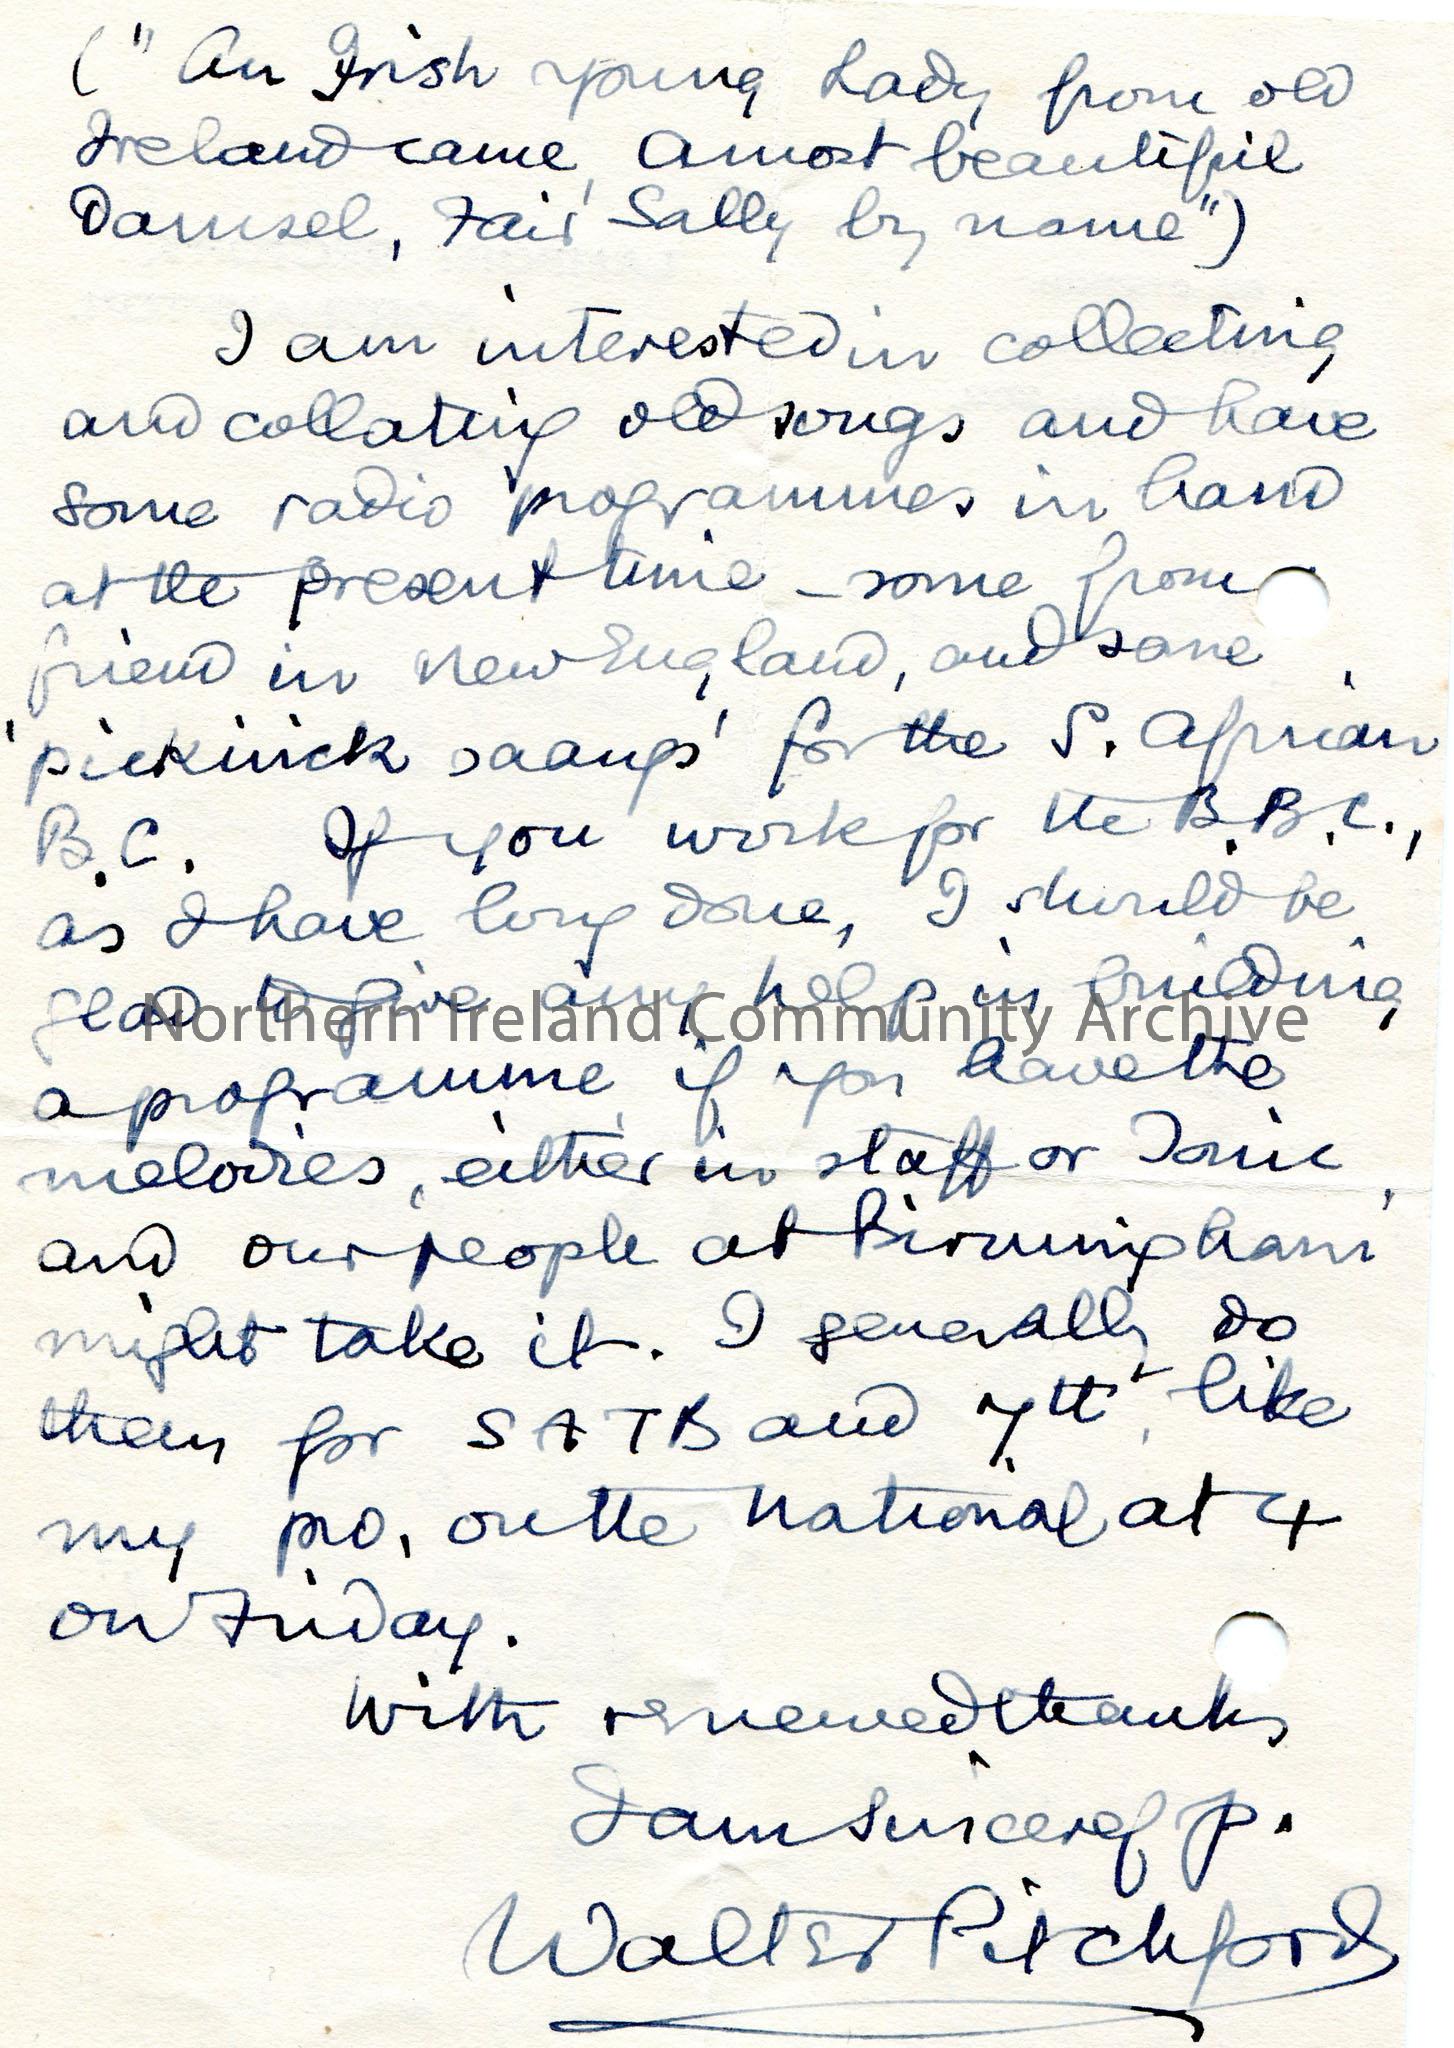 (" An Irish young Lady from old
Ireland came, a most beautiful
Damsel, Fair Sally by name")
I am interested in collecting
and collating old songs and have
some radio programmes in hand
at the present time - some from
friend in New England, and some
'piekinick saangs' for the S. African
B.C. If you work for the B.B.C.,
as I have long done, I should be
glad to give any help in building
a programme, if you have the
melodies, either in staff or Tonic,
and our people at Birmingham
might take it. I generally do
them for SATB and , like
my pro, on the National at 4
on Friday.
With renewed thanks
I am Sincerely
Walter Pitchford
Northern Ireland Community Archive